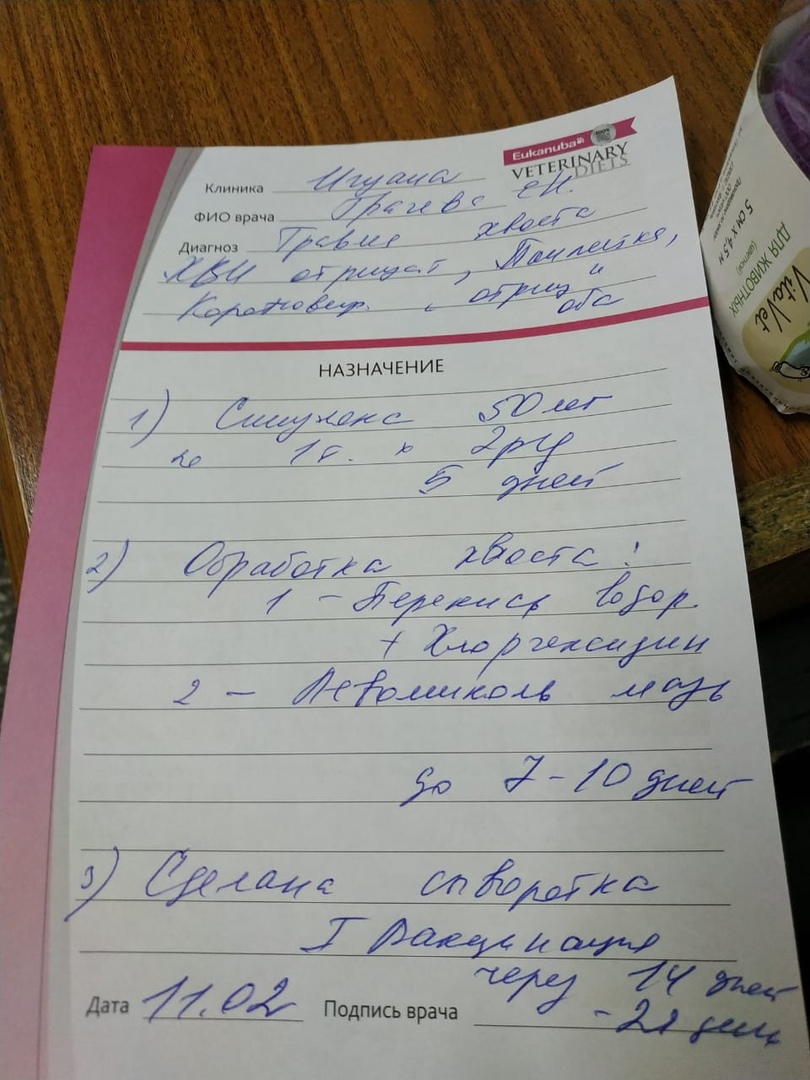 Eukanuba
VETERINARY
DIETS
Клиника Игуана
ФИО врача Грачева Е.Н.
Диагноз Травма хвоста
отрицат,
Коронавир. отриц
оба
НАЗНАЧЕНИЕ
1) Синулокс 50 мг
по 1т. х 2р/д
5 дней
2) Обработка хвоста!
1 - Перекись водор.
+ Хлоргексидин
2 - Левомиколь мазь
до 7-10 дней
3) Сделана сыворотка
I Вакцинация
через 14 дней
- 21 день
Дата 11.02 Подпись врача
5 см х 4,5 м
ДЛЯ ЖИВОТНЫХ
VitaVet